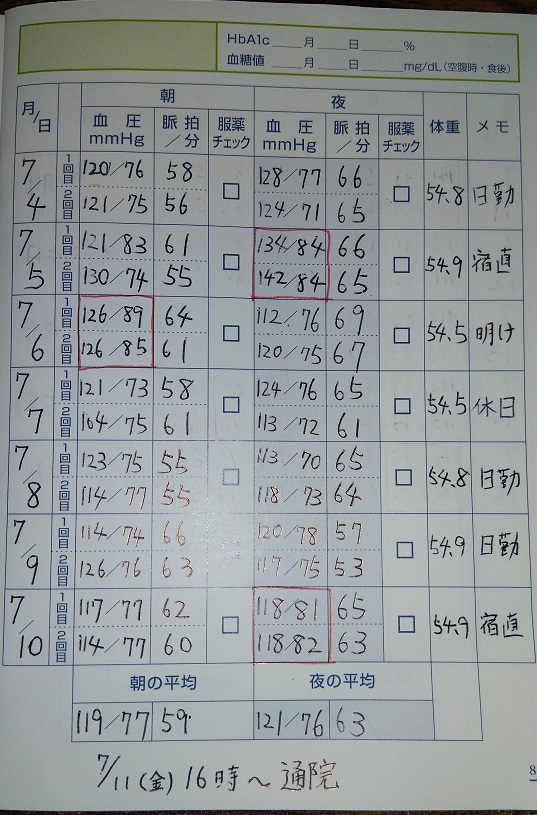 HbA1c ____月____日____%
血糖値 ____月____日____mg/dL(空腹時・食後)
月/日 朝 夜 体重 メモ
血圧 mmHg 脈拍/分 服薬チェック 血圧 mmHg 脈拍/分 服薬チェック
7/4 1回目 120/76 58 □ 128/77 66 □ 54.8 日勤
2回目 121/75 56 124/71 65
7/5 1回目 121/83 61 □ 134/84 66 □ 54.9 宿直
2回目 130/74 55 142/84 65
7/6 1回目 126/89 64 □ 112/76 69 □ 54.5 明け
2回目 126/85 61 120/75 67
7/7 1回目 121/73 58 □ 124/76 65 □ 54.5 休日
2回目 104/75 61 113/72 61
7/8 1回目 123/75 55 □ 113/70 65 □ 54.8 日勤
2回目 114/77 55 118/73 64
7/9 1回目 114/74 66 □ 120/78 57 □ 54.9 日勤
2回目 126/76 63 117/75 53
7/10 1回目 117/77 62 □ 118/81 65 □ 54.9 宿直
2回目 114/77 60 118/82 63
朝の平均 夜の平均
119/77 59 121/76 63
7/11(金)16時〜通院
8